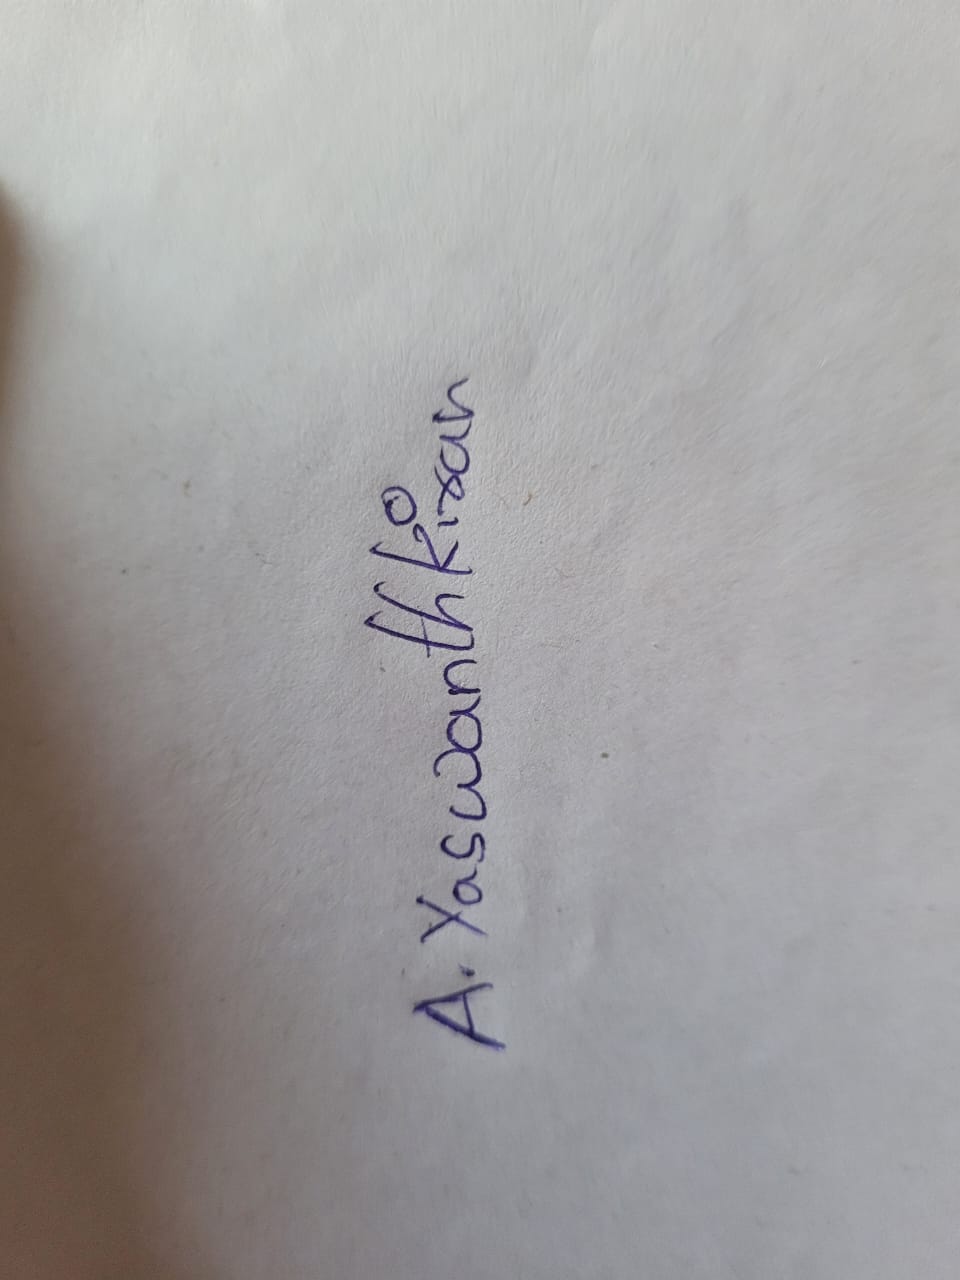 A. Yaswanth kiran